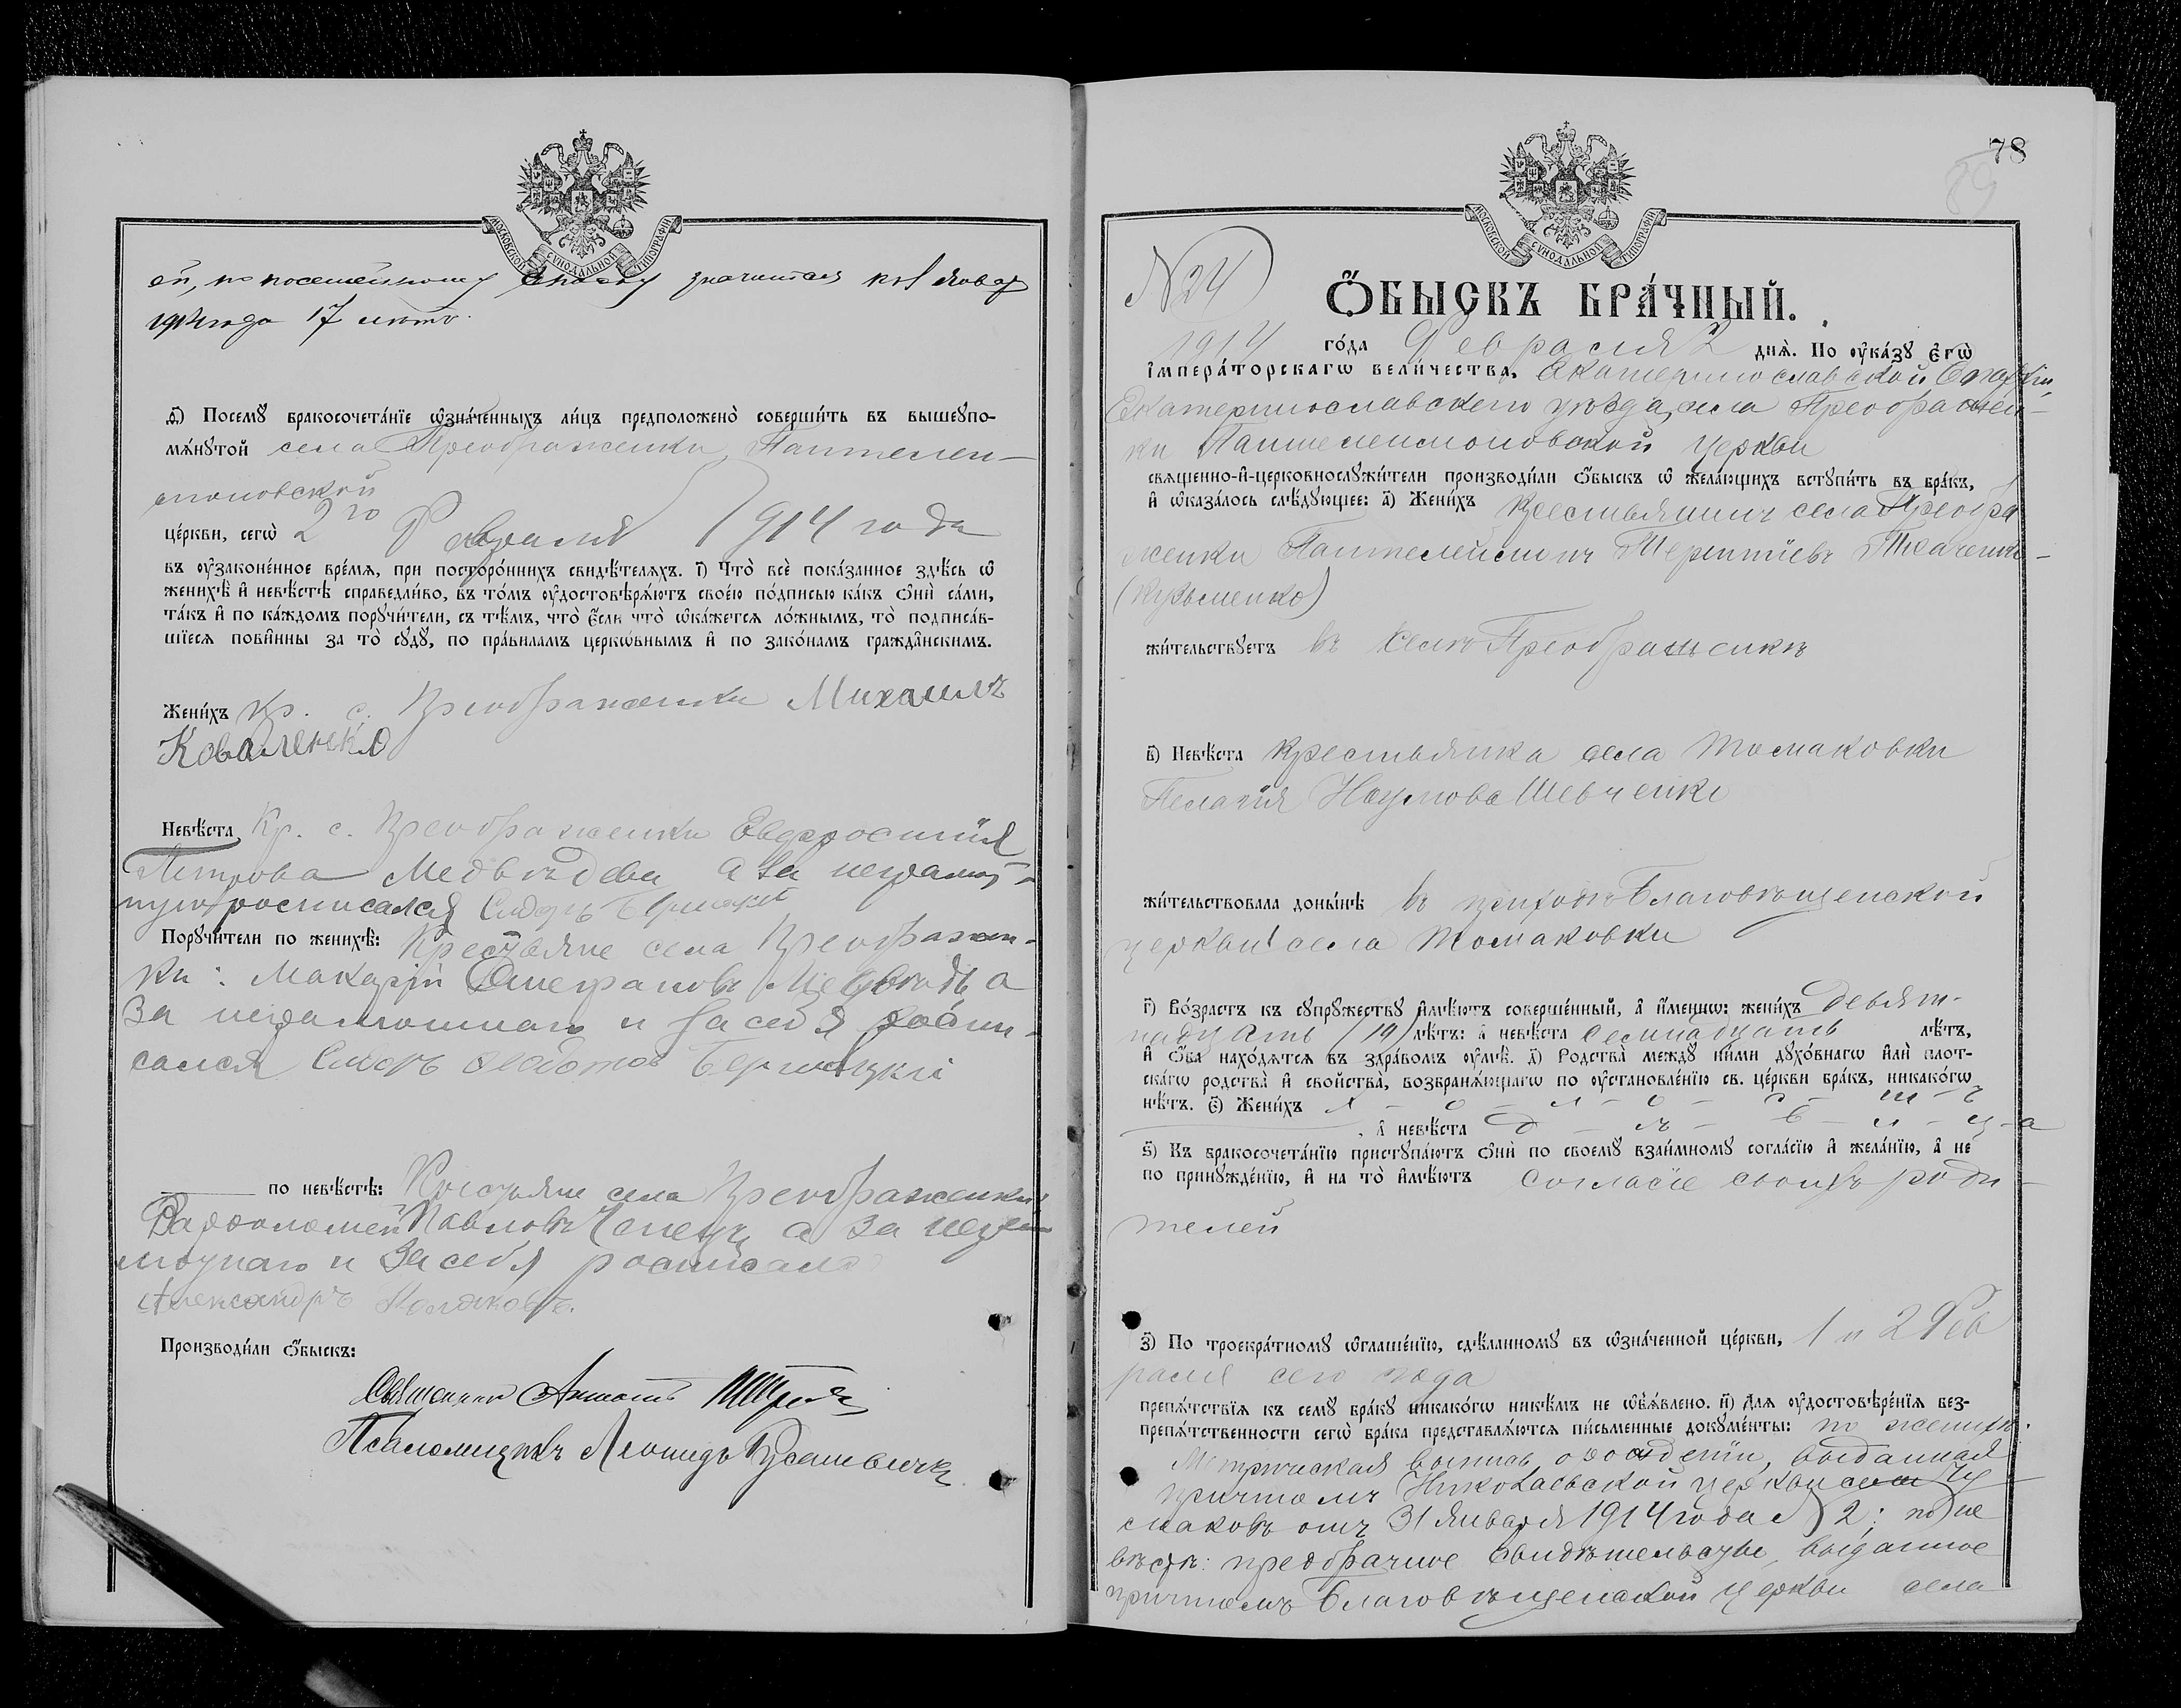 МОСКОВСКОЙ СУНОДАЛЬНОЙ ТИПОГРАФІИ
ей, по посемейному списку значится къ 1 янвр
1914 года 17 летъ.
д҃і) Посемꙋ бракосочета́нїе ѡ҆зна́ченныхъ ли́цъ предположено̀ соверши́ть въ вышеꙋпо-
мѧ́нꙋтой села Преображенки Пантелеи-
моновской
це́ркви, сегѡ̀ 2го Февраля 1914 года
въ ᲂу҆зако́ненное вре́мѧ, при посторо́ннихъ свидѣ́телѧхъ. і҃) Что̀ всѐ пока́занное здѣ́сь ѡ҆
женихѣ̀ и҆ невѣ́стѣ справедли́во, въ то́мъ ᲂу҆достовѣрѧ́ютъ свое́ю по́дписью ка́къ ѻ҆нѝ са́ми,
та́къ и҆ по ка́ждомъ порꙋчи́тели, съ тѣ́мъ, что̀ є҆́сли что̀ ѡ҆ка́жетсѧ ло́жнымъ, то̀ подписа́в-
шїесѧ пови́нны за то̀ сꙋдꙋ̀, по пра́виламъ церко́внымъ и҆ по зако́намъ гражда́нскимъ.
Жени́хъ кр. с. Преображенки Михаилъ
Коваленко
Невѣ́ста Кр. с. Преображенки Евфросинія
Петрова Медведева а за неграмот-
ную росписался Сидоръ
Порꙋчи́тели по женихѣ̀: Крестьяне села Преображен-
ки: Макарій Стефановъ Медведь а
за неграмотнаго и за себя роспи-
сался Сидоръ
по невѣ́стѣ: Крестьяне села Преображенки
Варфоломей Павловъ а за негра
мотнаго и за себя росписался
Александръ
Производи́ли ѻ҆́быскъ:
Священникъ
Псаломщикъ Леонидъ
78
89
МОСКОВСКОЙ СУНОДАЛЬНОЙ ТИПОГРАФІИ
N 24
Ѻ҆́БЫСКЪ БРА́ЧНЫЙ.
1914 го́да Февраля 2 днѧ̀. По ᲂу҆ка́зꙋ є҆гѡ̀
і҆мпера́торскагѡ вели́чества, Екатеринославской Епархіи,
Екатеринославскаго уезда, села Преображен-
ки Пантелеимоновской Церкви
свѧщенно-и҆-церковнослꙋжи́тели производи́ли ѻ҆́быскъ ѡ҆ жела́ющихъ встꙋпи́ть въ бра́къ,
и҆ ѡ҆каза́лось слѣ́дꙋющее: а҃) Жени́хъ Крестьянинъ села Преобра
женки Пантелеимонъ Терентіевъ Ткаченко-
(Кузьменко)
жи́тельствꙋетъ въ селѣ Преображенкѣ
в҃) Невѣ́ста Крестьянка села Томаковки
Пелагія Наумова Шевченко
жи́тельствовала доны́нѣ въ приходѣ Благовѣщенской
церкви села Томаковки
г҃) Во́зрастъ къ сꙋпрꙋ́жествꙋ и҆мѣ́ютъ соверше́нный, а҆ и҆́менно: жени́хъ девят-
надцать (19) лѣ́тъ: а҆ невѣ́ста семнадцать лѣ́тъ,
и҆ ѻ҆́ба нахо́дѧтсѧ въ здра́вомъ ᲂу҆мѣ̀. д҃) Родства̀ междꙋ ни́ми дꙋхо́внагѡ и҆лѝ плот-
ска́гѡ родства̀ и҆ свойства̀, возбранѧ́ющагѡ по ᲂу҆становле́нїю св. це́ркви бра́къ, никако́гѡ
нѣ́тъ. є҃) Жени́хъ х-о-л-о-с-т-ъ
, а҆ невѣ́ста д-ѣ-в-и-ц-а
ѕ҃) Къ бракосочета́нїю пристꙋпа́ютъ ѻ҆нѝ по своемꙋ̀ взаи́мномꙋ согла́сїю и҆ жела́нїю, а҆ не
по принꙋжде́нїю, и҆ на то̀ и҆мѣ́ютъ согласіе своихъ роди-
телей
з҃) По троекра́тномꙋ ѡ҆глаше́нїю, сдѣ́ланномꙋ въ ѡ҆зна́ченной це́ркви, 1 и 2 Фев
раля сего года
препѧ́тствїѧ къ семꙋ̀ бра́кꙋ никако́гѡ никѣ́мъ не ѡ҆б̾ѧ́влено. и҃) Длѧ ᲂу҆достовѣре́нїѧ без-
препѧ́тственности сегѡ̀ бра́ка представлѧ́ютсѧ пи́сьменные докꙋме́нты: по женихѣ.
Метрическая выпись о рожденіи, выданная
причтомъ Николаевской церкви села Чу
маковъ отъ 31 Января 1914 года N 2; по не
вѣстѣ: предбрачное свидѣтельство, выданное
причтомъ Благовѣщенской церкви села